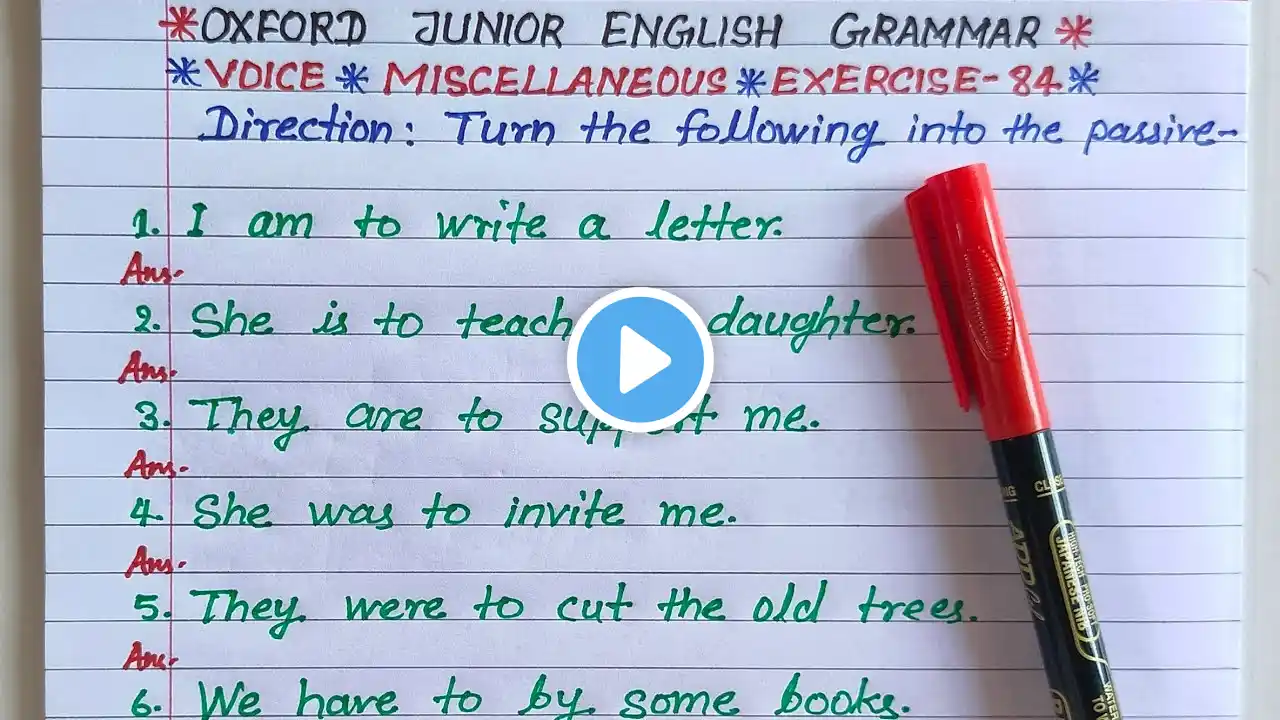 *OXFORD JUNIOR ENGLISH GRAMMAR*
*VOICE * MISCELLANEOUS * EXERCISE-84*
Direction: Turn the following into the passive-
1. I am to write a letter.
Ans.
2. She is to teach daughter.
Ans.
3. They are to support me.
Ans.
4. She was to invite me.
Ans.
5. They were to cut the old trees.
Ans.
6. We have to by some books.